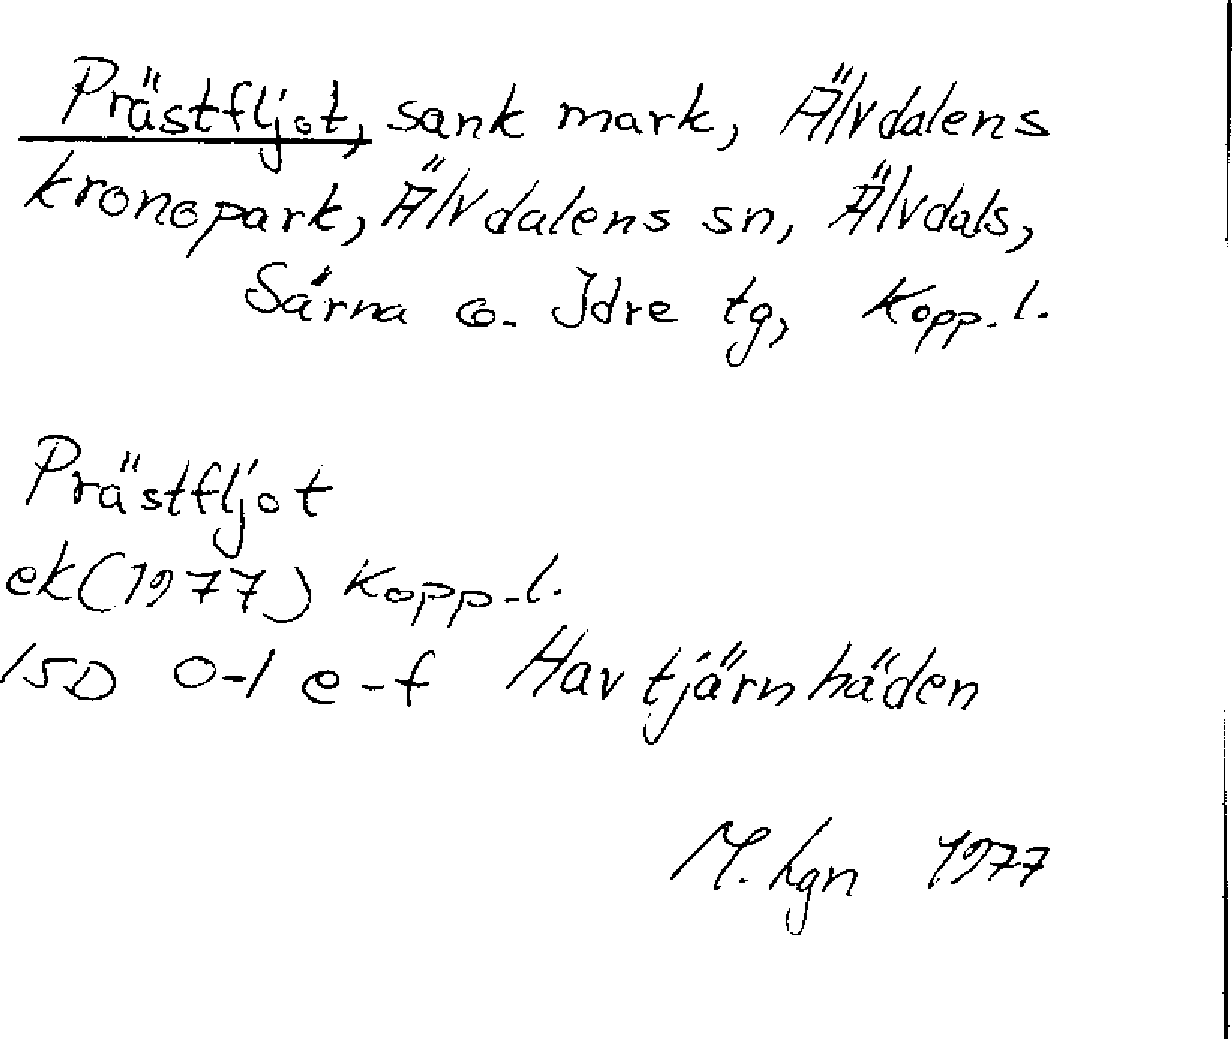 Prästfljot, sank mark, Älvdalens
kronopark, Älvdalens sn, Älvdals,
Särna o. Idre tg, Kopp. l.
Prästfljot
ek (1977) Kopp. l.
15D 0-1 e-f Havtjärnhäden
M. Lgn 1977